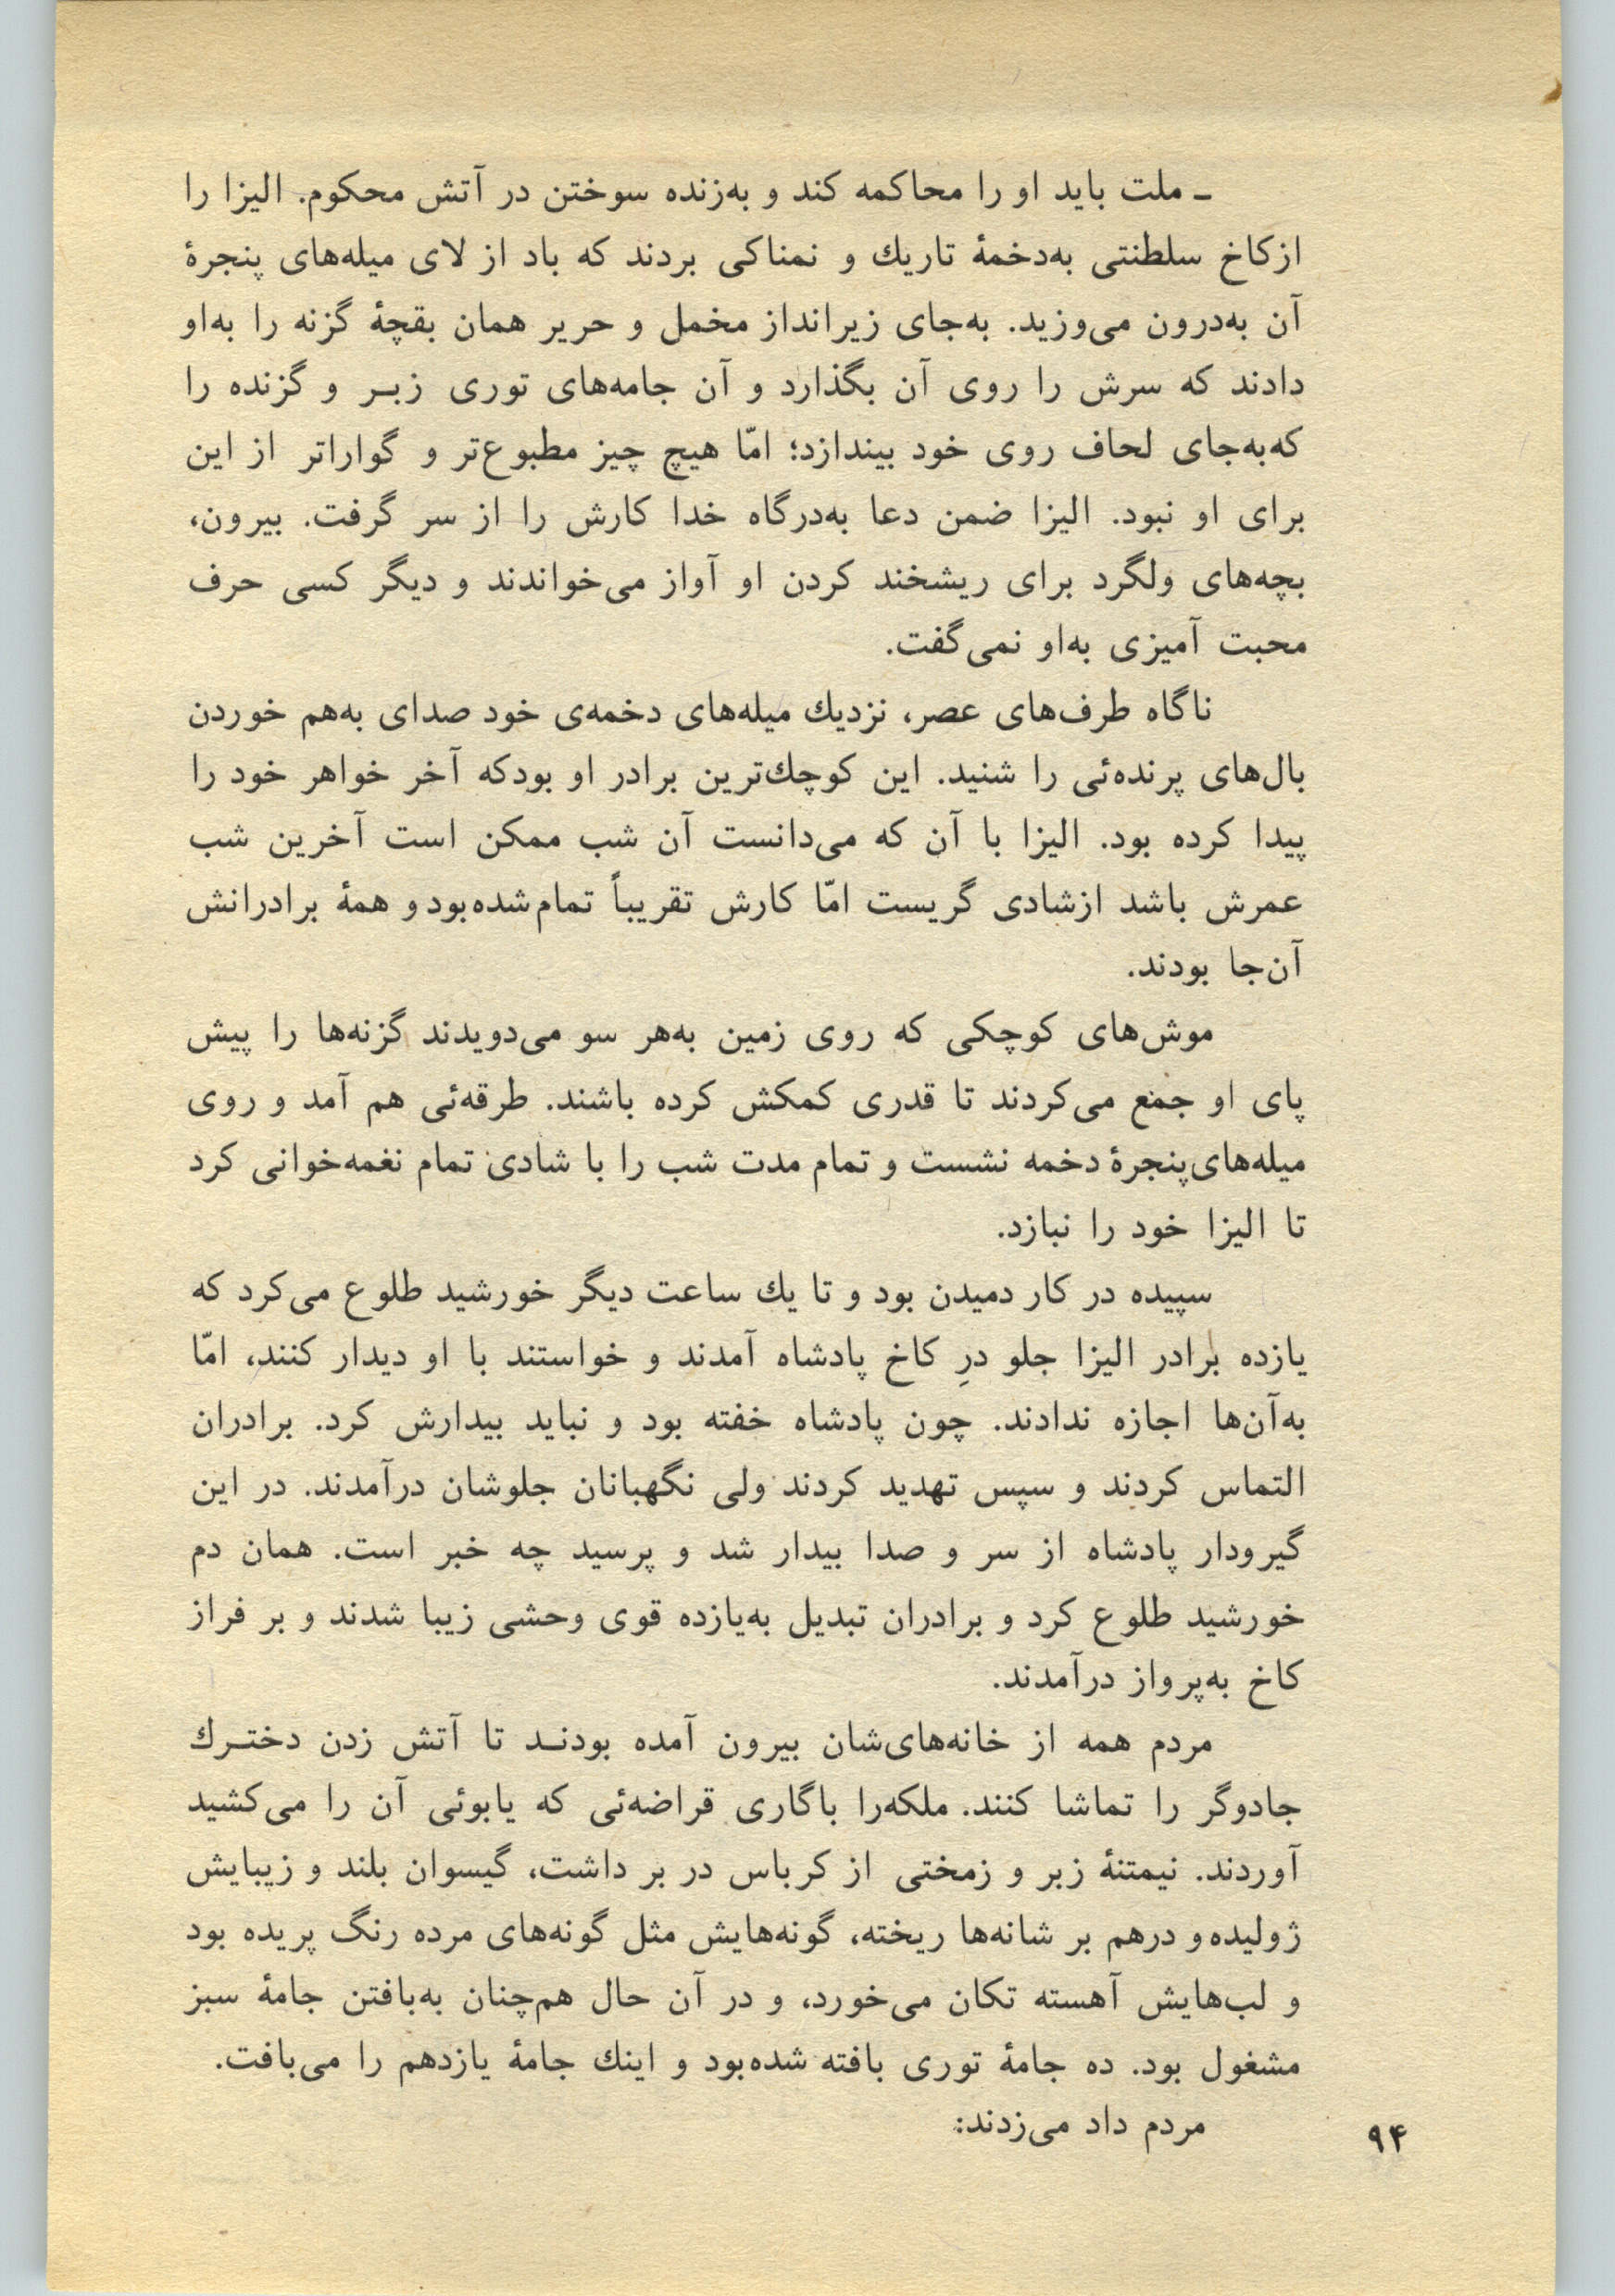 ـ ملت باید او را محاکمه کند و به‌زنده سوختن در آتش محکوم. الیزا را
ازکاخ سلطنتی به‌دخمهٔ تاریك و نمناکی بردند که باد از لای میله‌های پنجرهٔ
آن به‌درون می‌وزید. به‌جای زیرانداز مخمل و حریر همان بقچهٔ گزنه را به‌او
دادند که سرش را روی آن بگذارد و آن جامه‌های توری زبـر و گزنده را
که‌به‌جای لحاف روی خود بیندازد؛ امّا هیچ چیز مطبوع‌تر و گواراتر از این
برای او نبود. الیزا ضمن دعا به‌درگاه خدا کارش را از سر گرفت. بیرون،
بچه‌های ولگرد برای ریشخند کردن او آواز می‌خواندند و دیگر کسی حرف
محبت آمیزی به‌او نمی‌گفت.
ناگاه طرف‌های عصر، نزدیك میله‌های دخمه‌ی خود صدای به‌هم خوردن
بال‌های پرنده‌ئی را شنید. این کوچك‌ترین برادر او بودکه آخر خواهر خود را
پیدا کرده بود. الیزا با آن که می‌دانست آن شب ممکن است آخرین شب
عمرش باشد ازشادی گریست امّا کارش تقریباً تمام‌شده‌بود و همهٔ برادرانش
آن‌جا بودند.
موش‌های کوچکی که روی زمین به‌هر سو می‌دویدند گزنه‌ها را پیش
پای او جمع می‌کردند تا قدری کمکش کرده باشند. طرقه‌ئی هم آمد و روی
میله‌های‌پنجرهٔ دخمه نشست و تمام مدت شب را با شادی تمام نغمه‌خوانی کرد
تا الیزا خود را نبازد.
سپیده در کار دمیدن بود و تا یك ساعت دیگر خورشید طلوع می‌کرد که
یازده برادر الیزا جلو درِ کاخ پادشاه آمدند و خواستند با او دیدار کنند، امّا
به‌آن‌ها اجازه ندادند. چون پادشاه خفته بود و نباید بیدارش کرد. برادران
التماس کردند و سپس تهدید کردند ولی نگهبانان جلوشان درآمدند. در این
گیرودار پادشاه از سر و صدا بیدار شد و پرسید چه خبر است. همان دم
خورشید طلوع کرد و برادران تبدیل به‌یازده قوی وحشی زیبا شدند و بر فراز
کاخ به‌پرواز درآمدند.
مردم همه از خانه‌های‌شان بیرون آمده بودنـد تا آتش زدن دختـرك
جادوگر را تماشا کنند. ملکه‌را باگاری قراضه‌ئی که یابوئی آن را می‌کشید
آوردند. نیمتنهٔ زبر و زمختی از کرباس در بر داشت، گیسوان بلند و زیبایش
ژولیده و درهم بر شانه‌ها ریخته، گونه‌هایش مثل گونه‌های مرده رنگ پریده بود
و لب‌هایش آهسته تکان می‌خورد، و در آن حال هم‌چنان به‌بافتن جامهٔ سبز
مشغول بود. ده جامهٔ توری بافته شده‌بود و اینك جامهٔ یازدهم را می‌بافت.
مردم داد می‌زدند:
۹۴